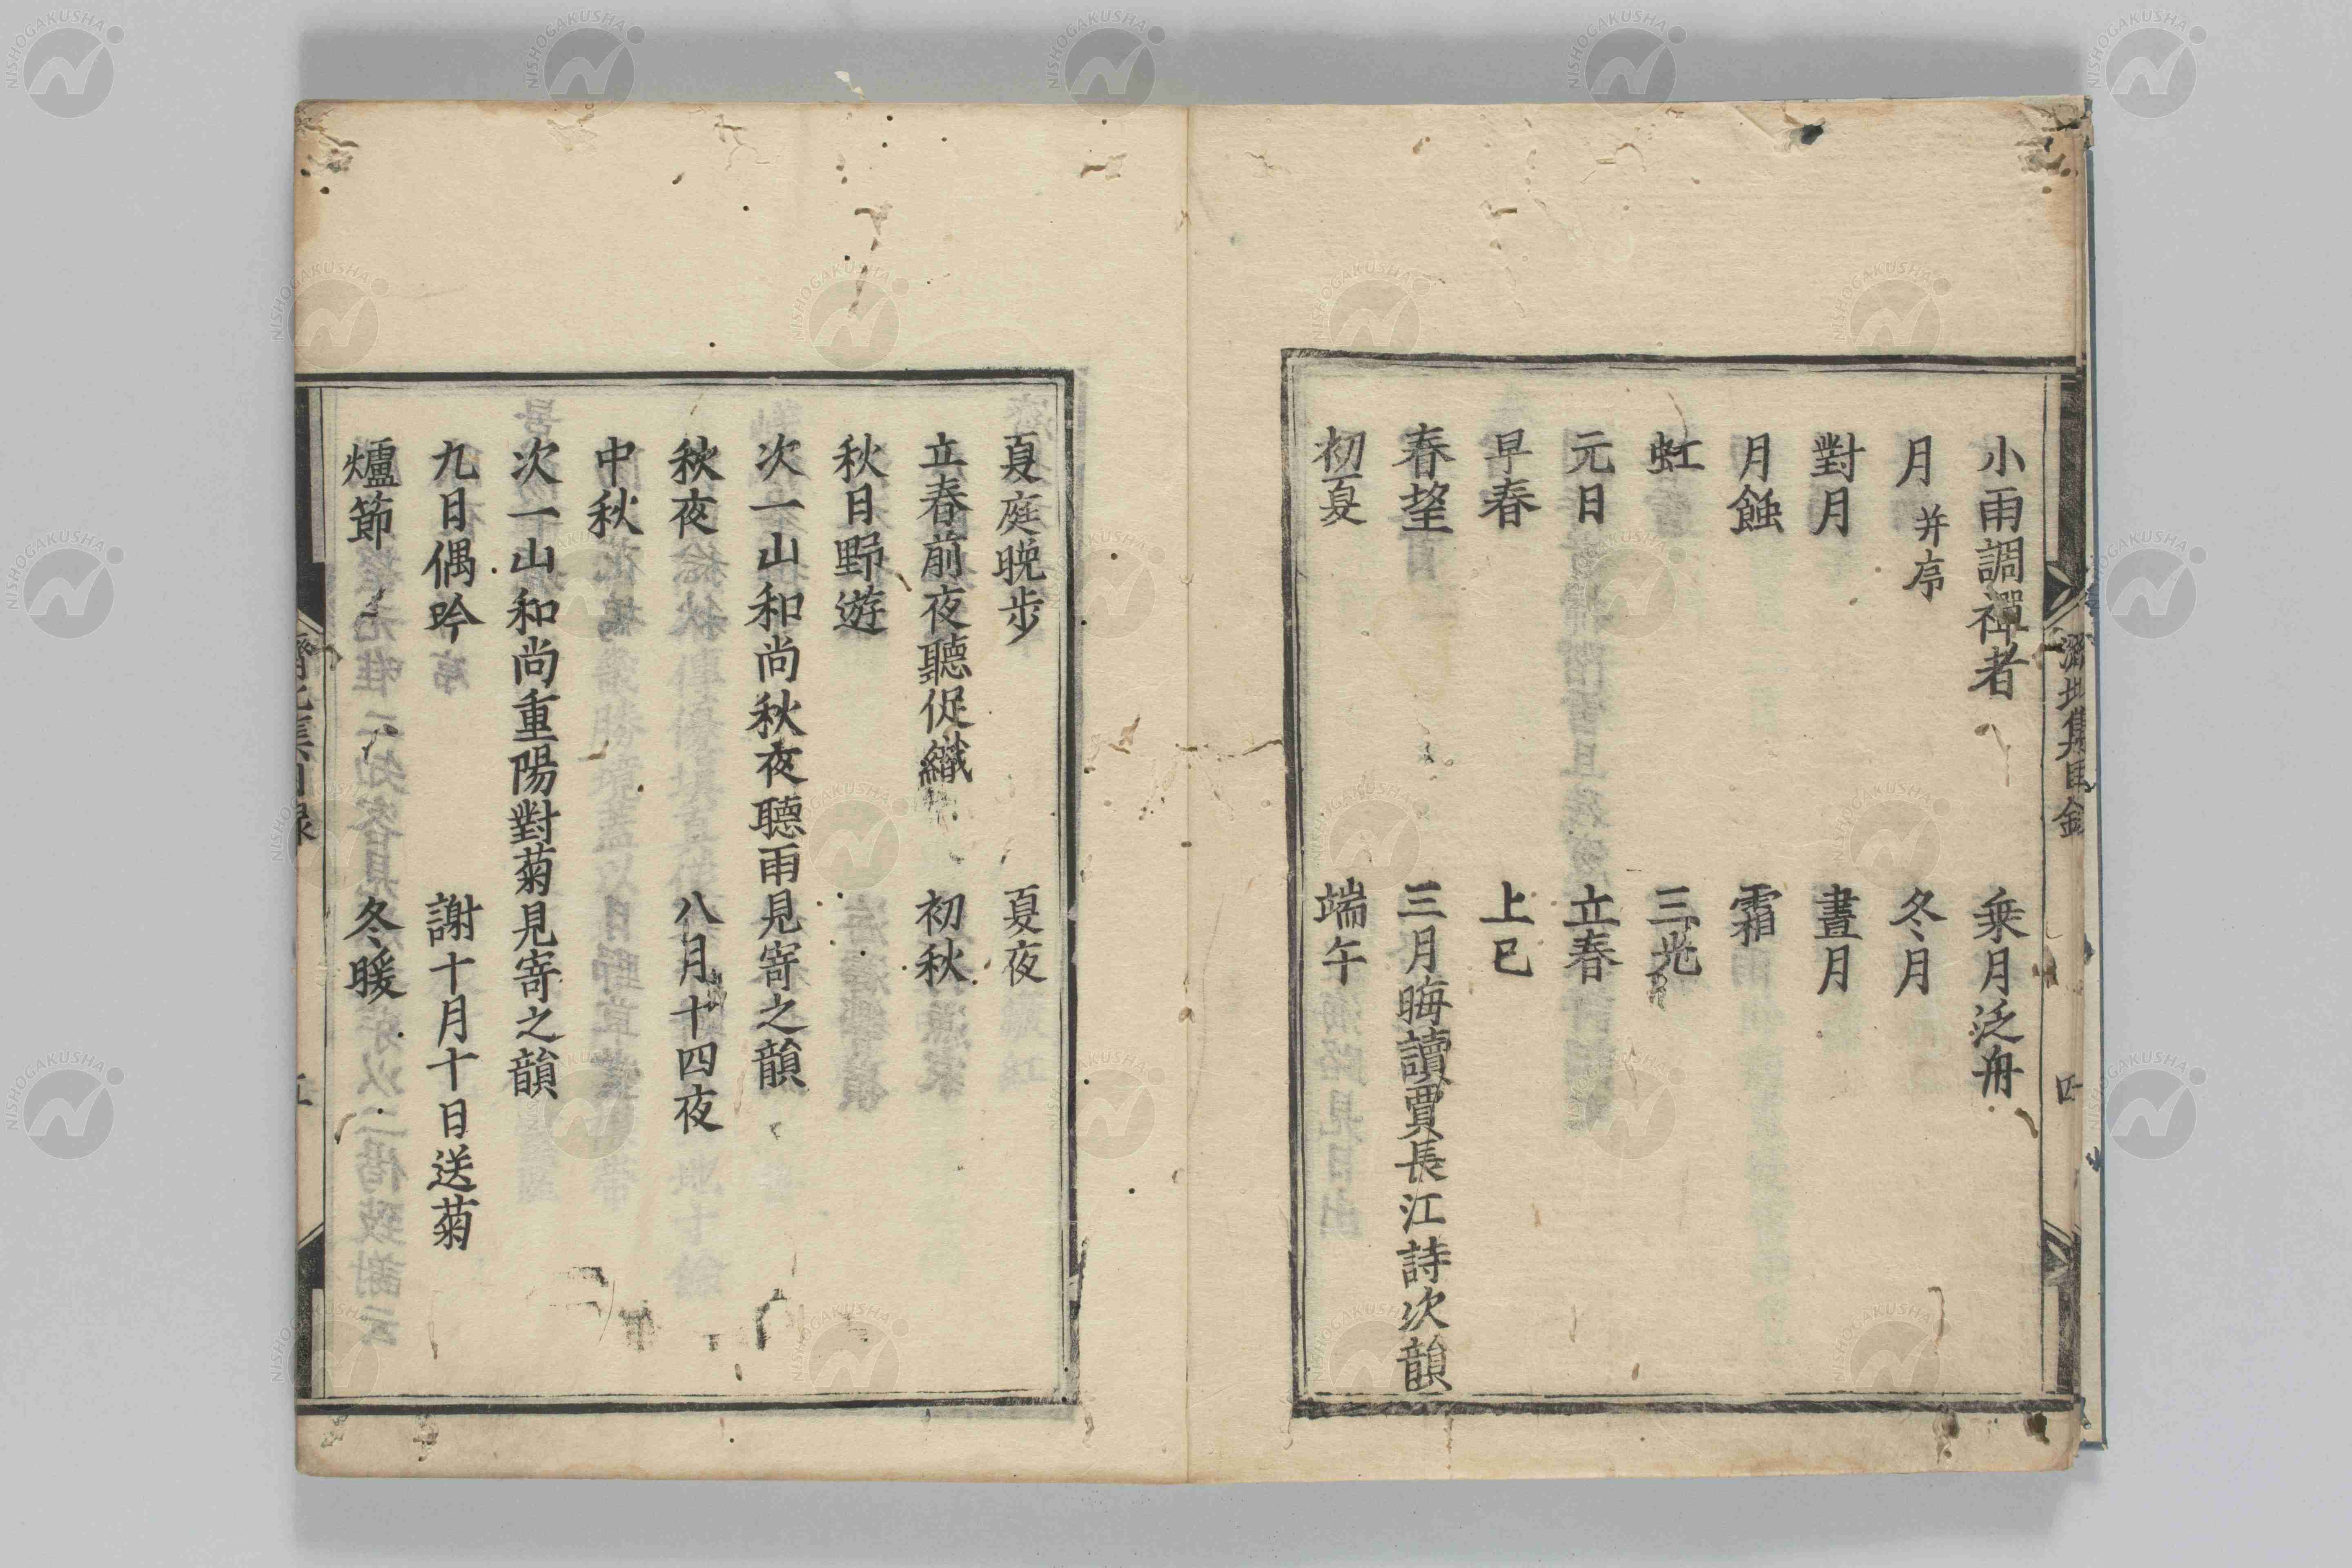 小雨調禪者 乗月泛舟
月 并序 冬月
對月 晝月
月蝕 霜
虹 三光
元日 立春
早春 上巳
春望 三月晦讀賈長江詩次韻
初夏 端午
夏庭晩步 夏夜
立春前夜聽促織 初秋
秋日野遊
次一山和尚秋夜聴雨見寄之韻
秋夜 八月十四夜
中秋
次一山和尚重陽對菊見寄之韻
九日偶吟 謝十月十日送菊
爐節 冬暖